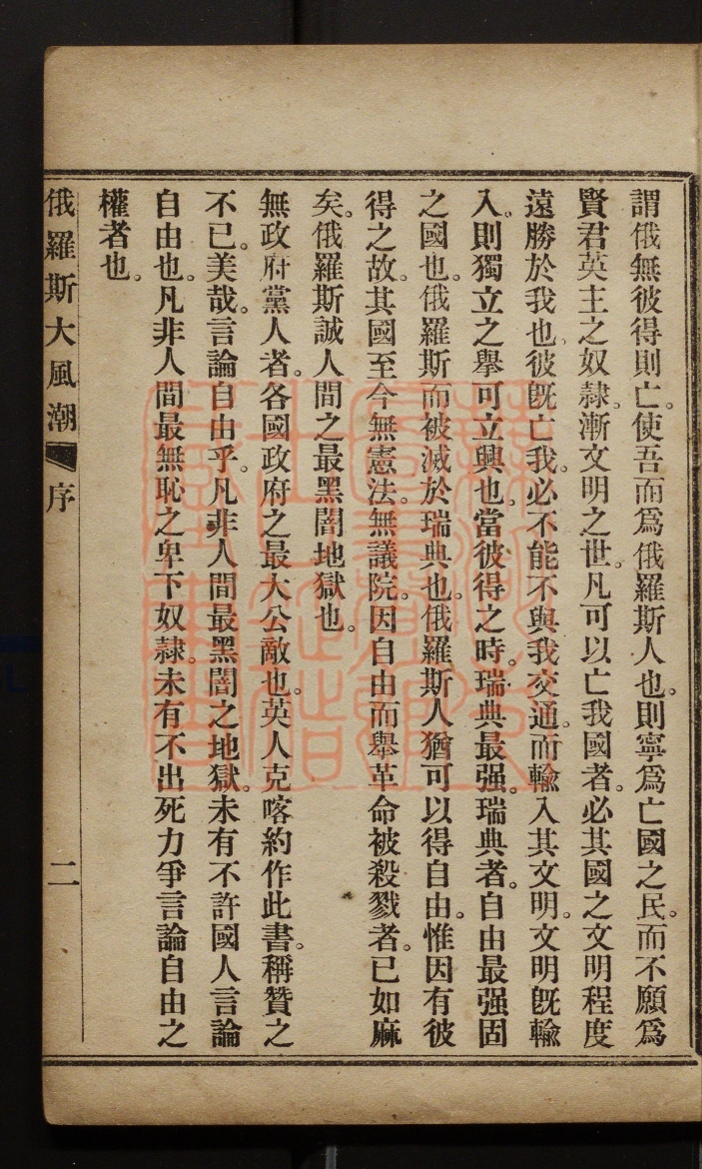 謂俄無彼得則亡。使吾而爲俄羅斯人也。則寧爲亡國之民。而不願爲
賢君英主之奴隷。漸文明之世。凡可以亡我國者。必其國之文明程度
遠勝於我也。彼旣亡我。必不能不與我交通。而輸入其文明。文明旣輸
入。則獨立之舉可立興也。當彼得之時。瑞典最强。瑞典者。自由最强固
之國也。俄羅斯而被滅於瑞典也。俄羅斯人猶可以得自由。惟因有彼
得之故。其國至今無憲法。無議院。因自由而舉革命被殺戮者。已如麻
矣。俄羅斯誠人間之最黑闇地獄也。
無政府黨人者。各國政府之最大公敵也。英人克喀約作此書。稱贊之
不已。美哉。言論自由乎。凡非人間最黑闇之地獄。未有不許國人言論
自由也。凡非人間最無恥之卑下奴隷。未有不出死力爭言論自由之
權者也。
俄羅斯大風潮 序 二